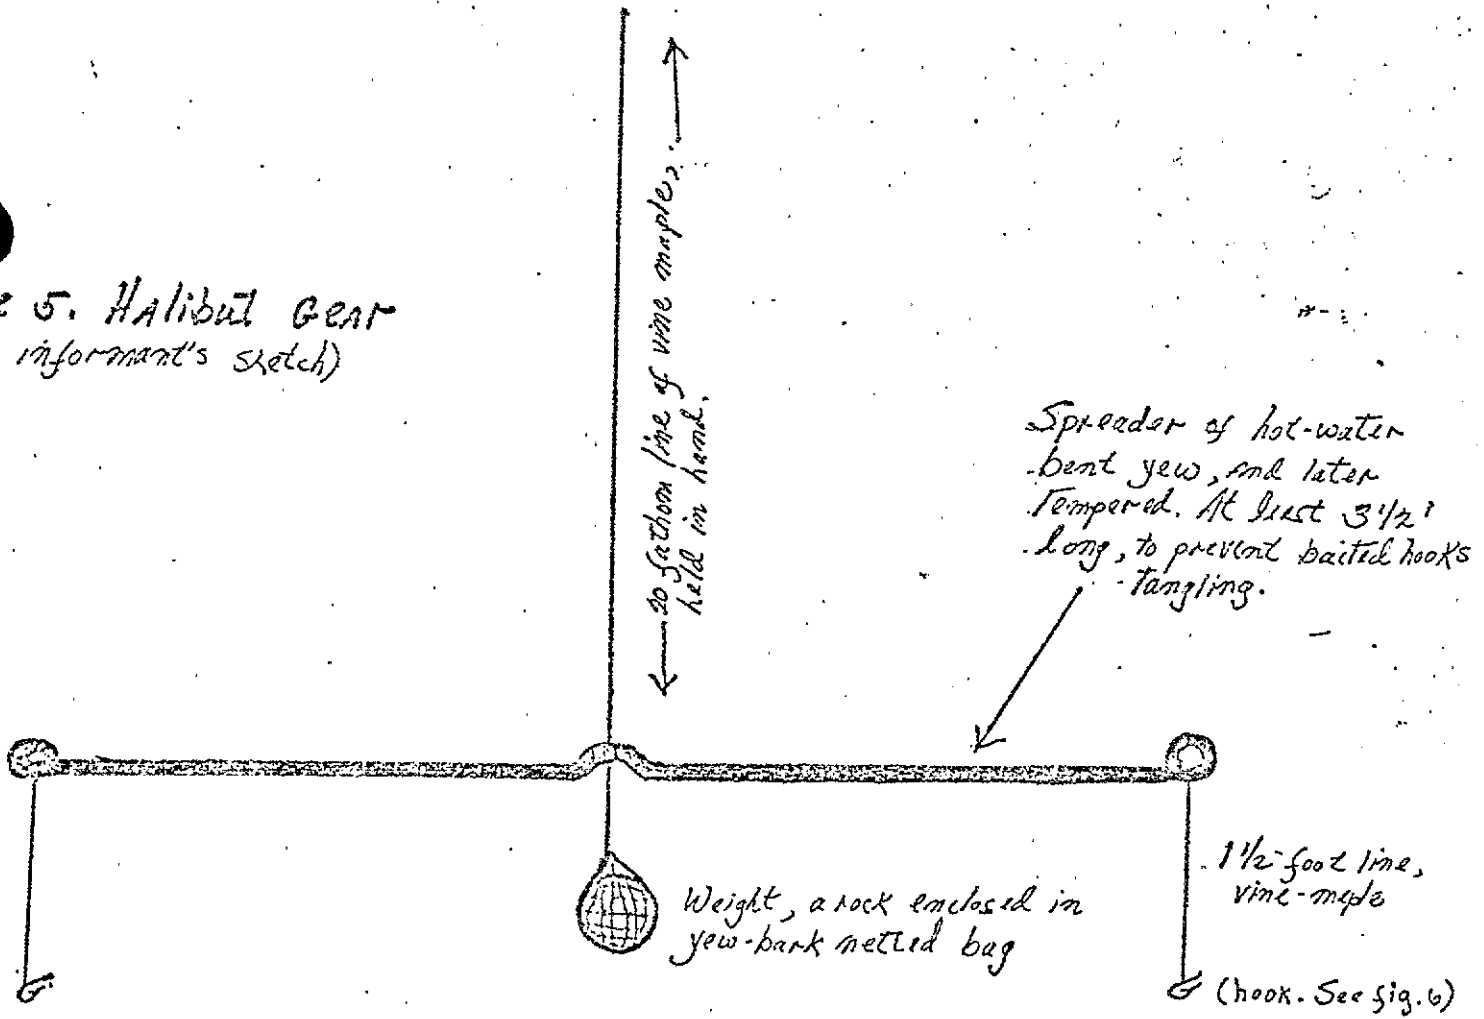 e 5. Halibut Gear
informant's sketch)
20 fathom line of vine maple,
held in hand.
Spreader of hot-water
bent yew, and later
Tempered. At least 3 1/2'
long, to prevent baited hooks
tangling.
Weight, a rock enclosed in
yew-bark netted bag
1 1/2-foot line,
vine-maple
(hook. See fig. 6)